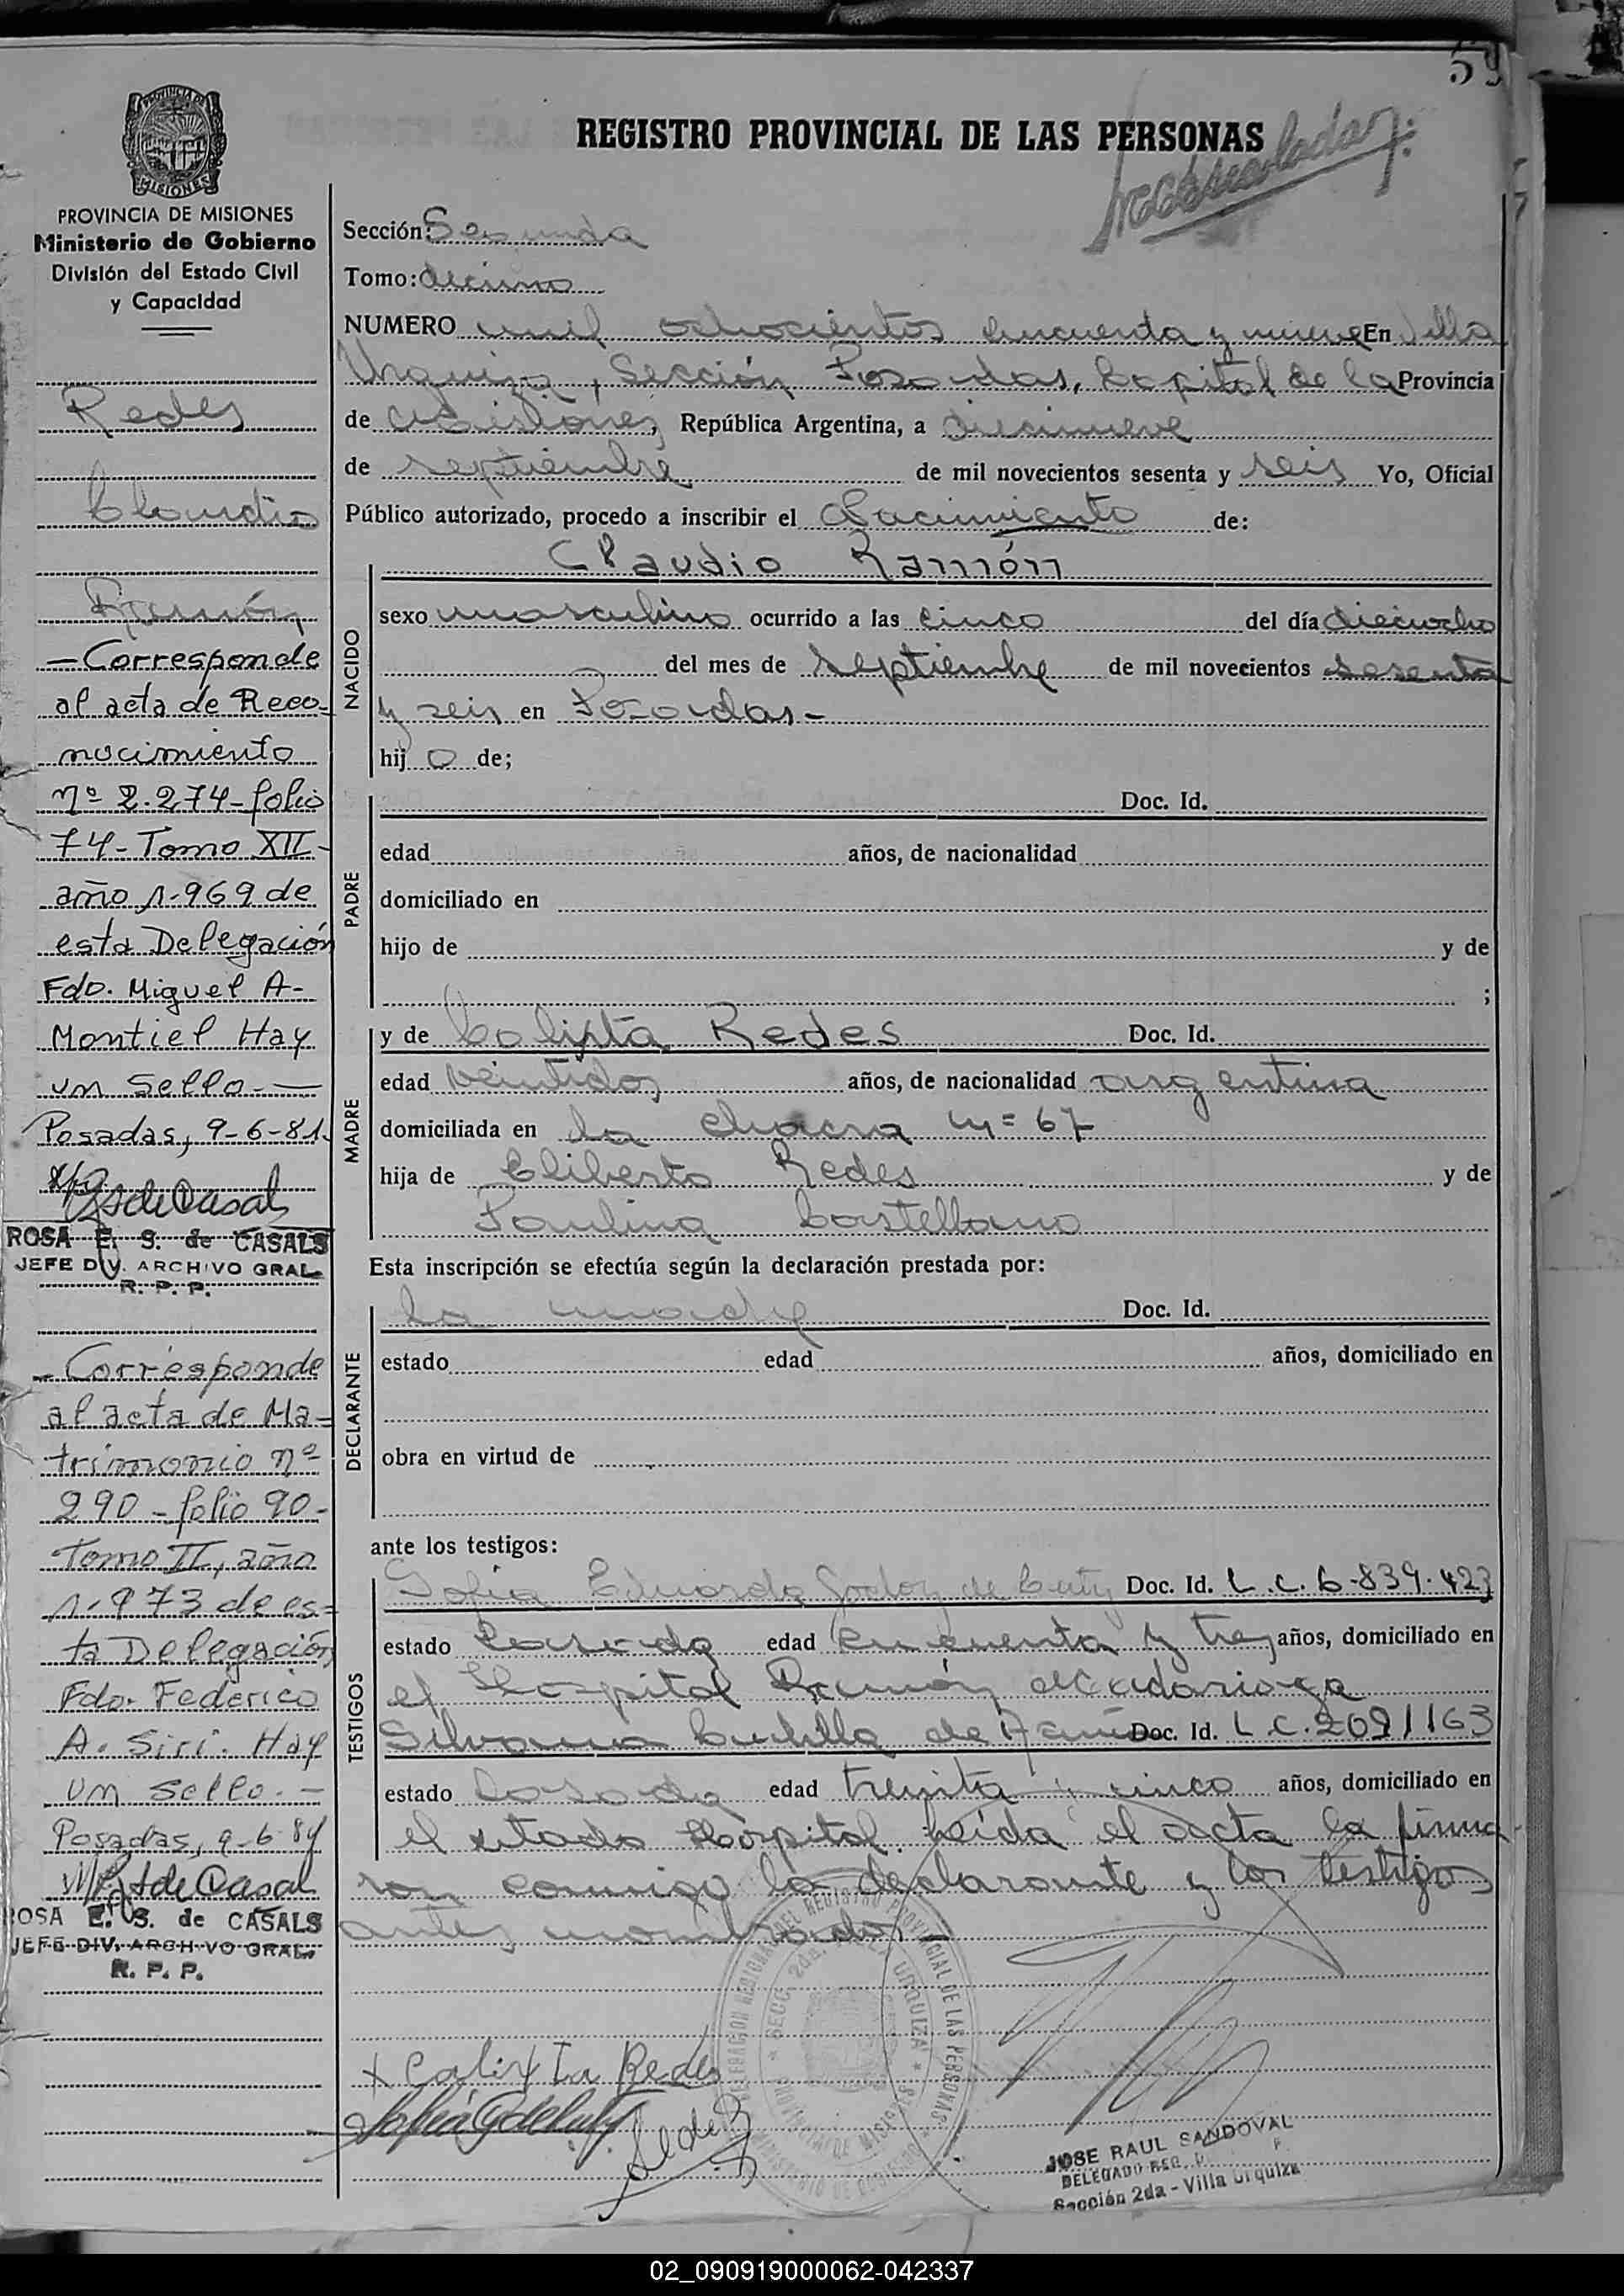 59
REGISTRO PROVINCIAL DE LAS PERSONAS
PROVINCIA DE MISIONES
MISIONES
PROVINCIA DE MISIONES
Ministerio de Gobierno
División del Estado Civil
y Capacidad
Redes
Claudio
Ramón
— Corresponde
al acta de Reco-
nocimiento
Nº 2.274 - folio
74 - Tomo XII -
año 1.969 de
esta Delegación
Fdo. Miguel A.
Montiel Hay
un sello. —
Posadas, 9-6-81.
ROSA E. S. de CASALS
JEFE DIV. ARCHIVO GRAL.
R. P. P.
— Corresponde
al acta de Ma-
trimonio nº
290 - folio 90 -
Tomo II, año
1.973 de es-
ta Delegación
Fdo. Federico
A. Siri. Hay
un sello. —
Posadas, 9-6-81
ROSA E. S. de CASALS
JEFE DIV. ARCHIVO GRAL.
R. P. P.
Sección: Segunda
Tomo: decimo
NUMERO mil ochocientos cincuenta y nueve En Villa
Urquiza, Sección Posadas, Capital de la Provincia
de Misiones, República Argentina, a diecinueve
de septiembre de mil novecientos sesenta y seis Yo, Oficial
Público autorizado, procedo a inscribir el Nacimiento de:
NACIDO
Claudio Ramón
sexo masculino ocurrido a las cinco del día dieciocho
del mes de septiembre de mil novecientos sesenta
y seis en Posadas -
hij o de;
PADRE
Doc. Id.
edad años, de nacionalidad
domiciliado en
hijo de y de
;
MADRE
y de Calixta Redes Doc. Id.
edad veintidos años, de nacionalidad argentina
domiciliada en la chacra nº 67
hija de Eliberto Redes y de
Paulina Castellano
Esta inscripción se efectúa según la declaración prestada por:
DECLARANTE
la madre Doc. Id.
estado edad años, domiciliado en
obra en virtud de
ante los testigos:
TESTIGOS
Sofia Eduarda Godoy de Doc. Id. L.C. 6.839.423
estado casada edad cincuenta y tres años, domiciliado en
el Hospital Ramón Madariaga
Silvana de Doc. Id. L.C. 2091163
estado casada edad treinta y cinco años, domiciliado en
el citado Hospital. Leída el acta la firma-
ron conmigo la declarante y los testigos
antes nombrados -
x Calixta Redes
JOSE RAUL SANDOVAL
DELEGADO REG.
Sección 2da - Villa Urquiza
02_090919000062-042337